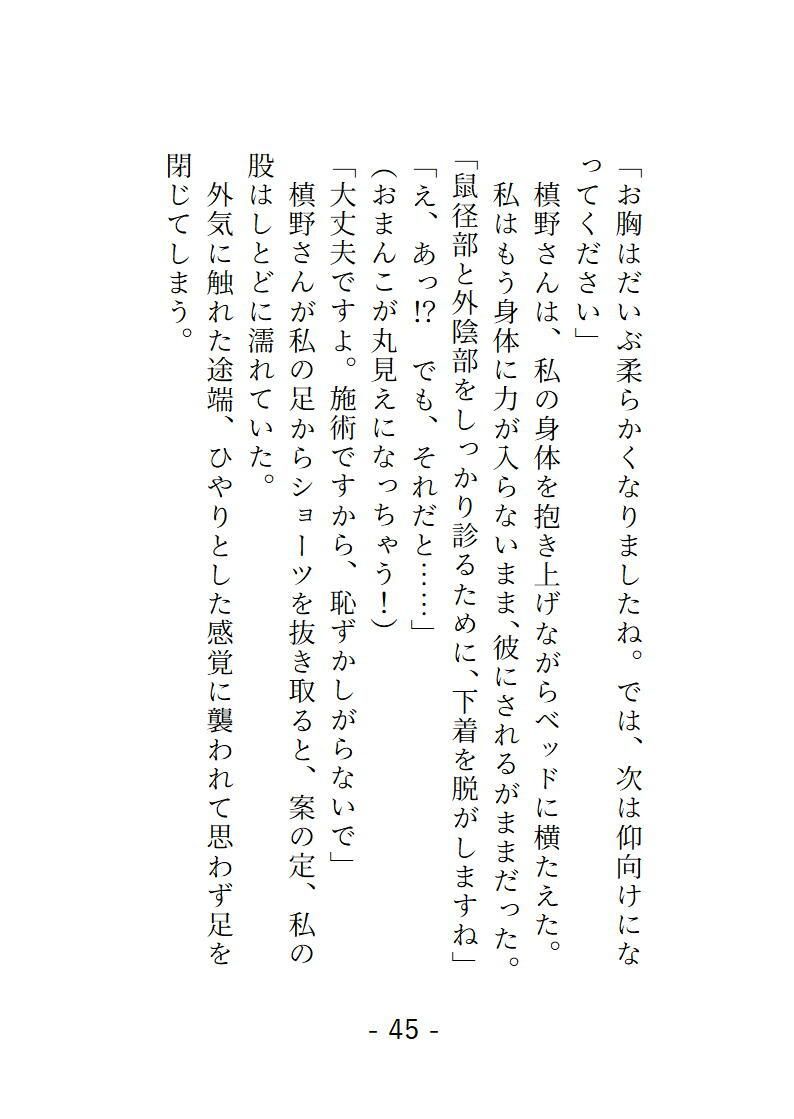 「お胸はだいぶ柔らかくなりましたね。では、次は仰向けにな
ってください」
　槙野さんは、私の身体を抱き上げながらベッドに横たえた。
　私はもう身体に力が入らないまま、彼にされるがままだった。
「鼠径部と外陰部をしっかり診るために、下着を脱がしますね」
「え、あっ!?　でも、それだと……」
（おまんこが丸見えになっちゃう！）
「大丈夫ですよ。施術ですから、恥ずかしがらないで」
　槙野さんが私の足からショーツを抜き取ると、案の定、私の
股はしとどに濡れていた。
　外気に触れた途端、ひやりとした感覚に襲われて思わず足を
閉じてしまう。
- 45 -